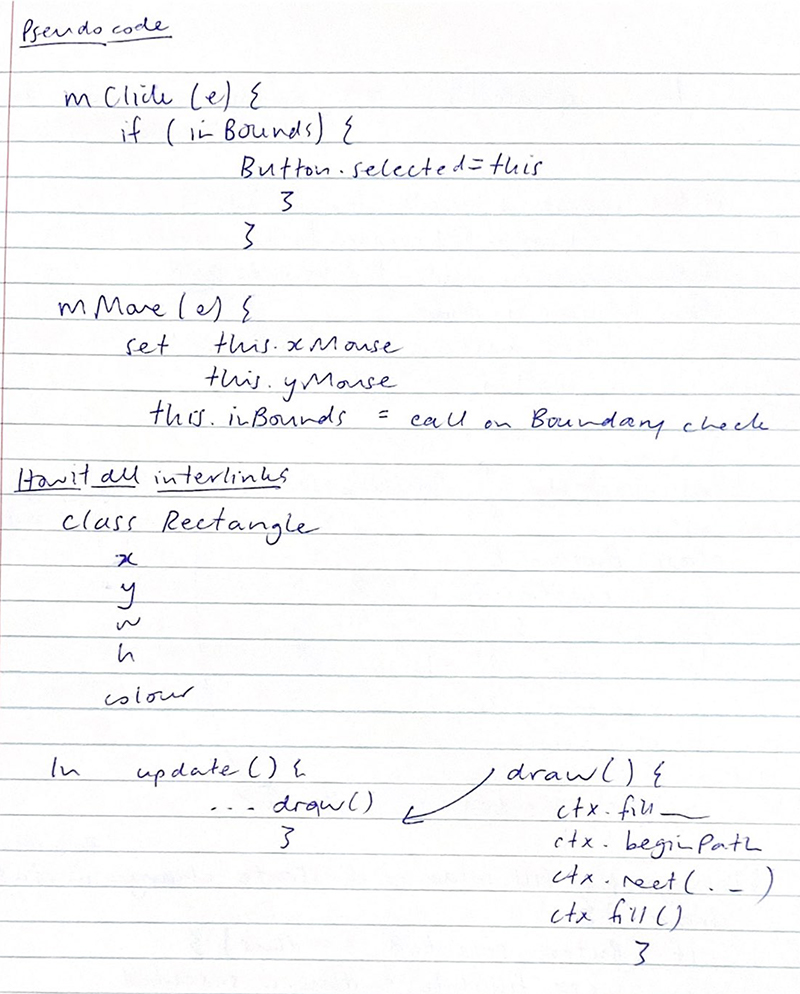 Pseudocode
mClick (e) {
if (inBounds) {
Button.selected=this
}
}
mMove (e) {
set this.xMouse
this.yMouse
this.inBounds = call on Boundary check
How it all interlinks
class Rectangle
x
y
w
h
colour
In update() {
... draw()
}
draw() {
ctx.fill __
ctx.beginPath
ctx.rect(. _ )
ctx fill()
}